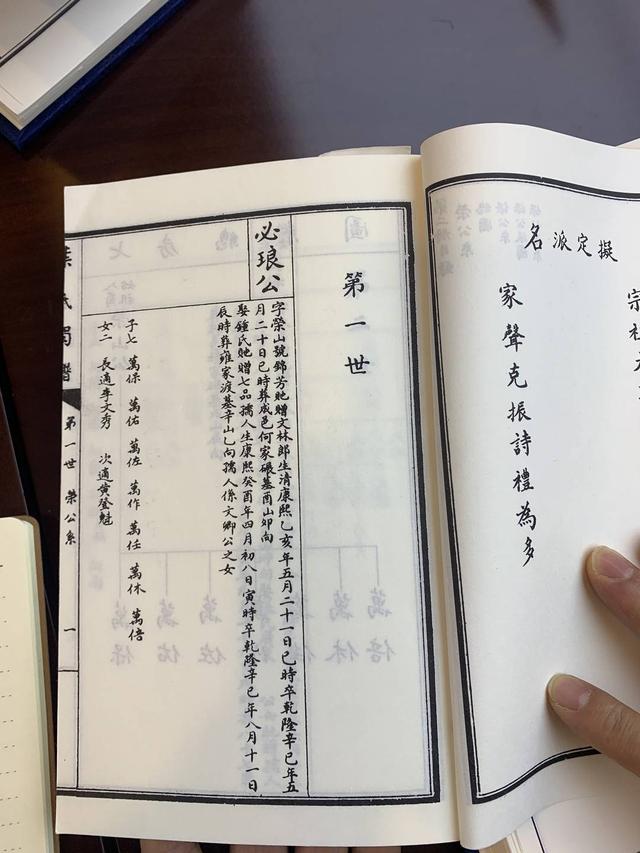 擬定派名
宗社
家聲克振詩禮為多
第一世
必琅公
字榮山號錦芳貤贈文林郎生清康熙乙亥年五月二十一日巳時卒乾隆辛巳年五
月二十日巳時葬成邑何家碾墓酉山卯向
娶鍾氏貤贈七品孺人生康熙癸酉年四月初八日寅時卒乾隆辛巳年八月十一日
辰時葬雍家渡墓辛山乙向孺人係文卿公之女
子七 萬保 萬佑 萬佐 萬作 萬任 萬休 萬倍
女二 長適李文秀 次適黃登魁
葉氏蜀譜 第一世 榮公系 一